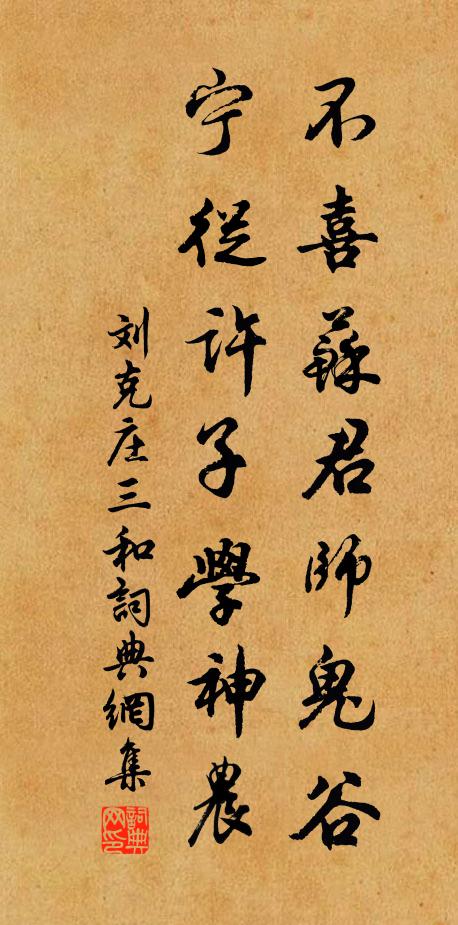 不喜蘇君師鬼谷
宁從許子學神農
刘克庄三和詞典網集
詞典网印